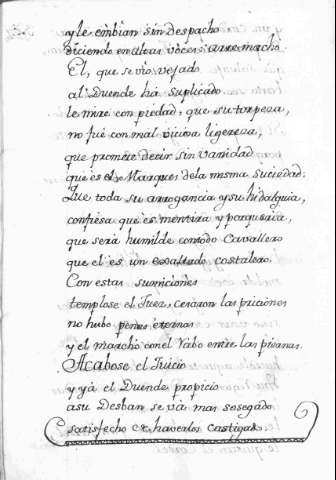 y le embian sin despacho
diciendo en altas voces: arre macho
El, que se vio vejado
al Duende ha suplicado
le mire con piedad, que su torpeza,
no fué con mal vicina ligereza,
que promete decir sin vanidad
que es el Marques de la misma suciedad.
Que toda su arrogancia y su hidalguia,
confiesa que es mentira y porqueria,
que será humilde como do Cavallero
que el es un exaltado costalero.
Con estas sumiciones
templose el Juez, cesaron las priciones
no hubo penas eternas
y el marchó con el Rabo entre las piernas.
Acabose el Juicio
y yá el Duende propicio
a su Desban se vá mas sosegado
satisfecho de haverlos castigado.